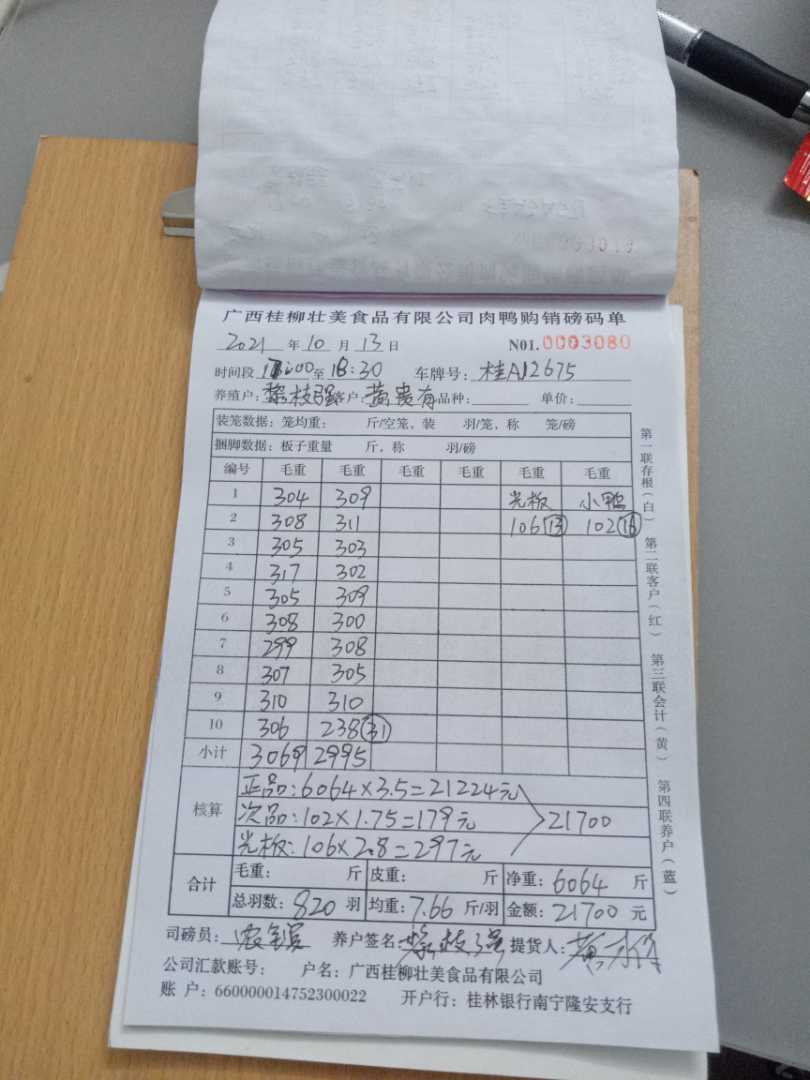 广西桂柳壮美食品有限公司肉鸭购销磅码单
2021 年 10 月 13 日 N01.0003080
时间段 17:00 至 18:30 车牌号: 桂A12675
养殖户: 黎枝强 客户: 黄贵有 品种: 单价:
装笼数据: 笼均重: 斤/空笼, 装 羽/笼, 称 笼/磅
捆脚数据: 板子重量 斤, 称 羽/磅
编号 毛重 毛重 毛重 毛重 毛重 毛重
1 304 309 光板 小鸭
2 308 311 106 (13) 102
3 305 303
4 317 302
5 305 309
6 308 300
7 299 308
8 307 305
9 310 310
10 306 238 (31)
小计 3069 2995
核算
正品:6064×3.5=21224元
次品:102×1.75=179元
21700
光板:106×2.8=297元
合计
毛重: 斤 皮重: 斤 净重: 6064 斤
总羽数: 820 羽 均重: 7.66 斤/羽 金额: 21700 元
司磅员: 养户签名: 黎枝强 提货人:
公司汇款账号: 户名: 广西桂柳壮美食品有限公司
账 户: 660000014752300022 开户行: 桂林银行南宁隆安支行
第一联存根(白) 第二联客户(红) 第三联会计(黄) 第四联养户(蓝)